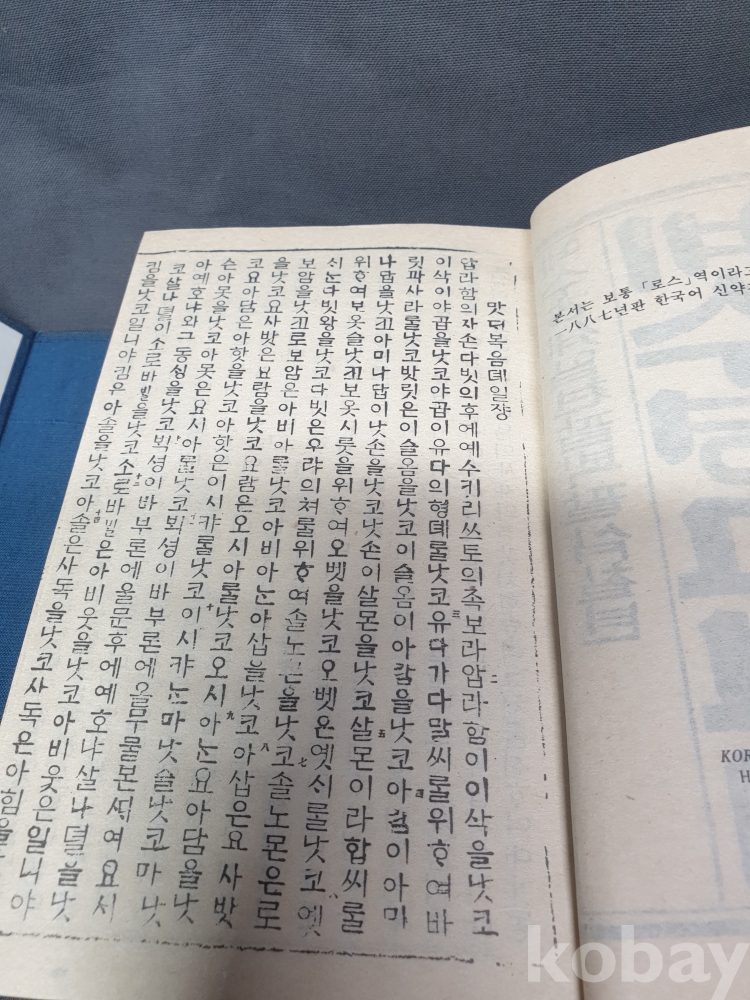 맛ᄃᆡ복음뎨일쟝
압라함의자손다빗의후예예수키리쓰토의촉보라二압라함이이삭을낫코
이삭이야곱을낫코야곱이유다의형뎨를낫코三유다가다말씨룰위ᄒᆞ여바
릿과사라룰낫코밧릿은이슬옴을낫코이슬옴이아람을낫코四아람이아미
나답을낫꼬아미나답이낫손을낫코낫손이살몬을낫코五살몬이라합씨룰
위ᄒᆞ여보옷슬낫꼬보옷시룻을위ᄒᆞ여오벳을낫코오벳은옛시룰낫코옛
시ᄂᆞᆫ다빗왕을낫코다빗은우랴의쳐룰위ᄒᆞ여솔노몬을낫코七솔노몬은로
보암을낫꼬로보암은아비아룰낫코아비아ᄂᆞᆫ아삽을낫코八아삽은요사밧
을낫코요사밧은요람을낫코요람은오시아룰낫코九오시아ᄂᆞᆫ요아담을낫
코요아담은아핫을낫코아핫은이시캬룰낫코十이시캬ᄂᆞᆫ마낫슬낫코마낫
슨아못을낫코아못은요시아룰낫코빅셩이바부론에올무물본셔여요시
아예호냐와그동싱을낫코빅셩이바부론에올문후에예호냐살나뎔을낫
코살나뎔이소로바벨을낫코소로바벨은아비웃을낫코아비웃은일니야
킴을낫코일니야킴은아솔을낫코아솔은사독을낫코사독은아힘을
본서는 보통 「로스」역이라고
一八八七년판 한국어 신약
KOR
H
kobay